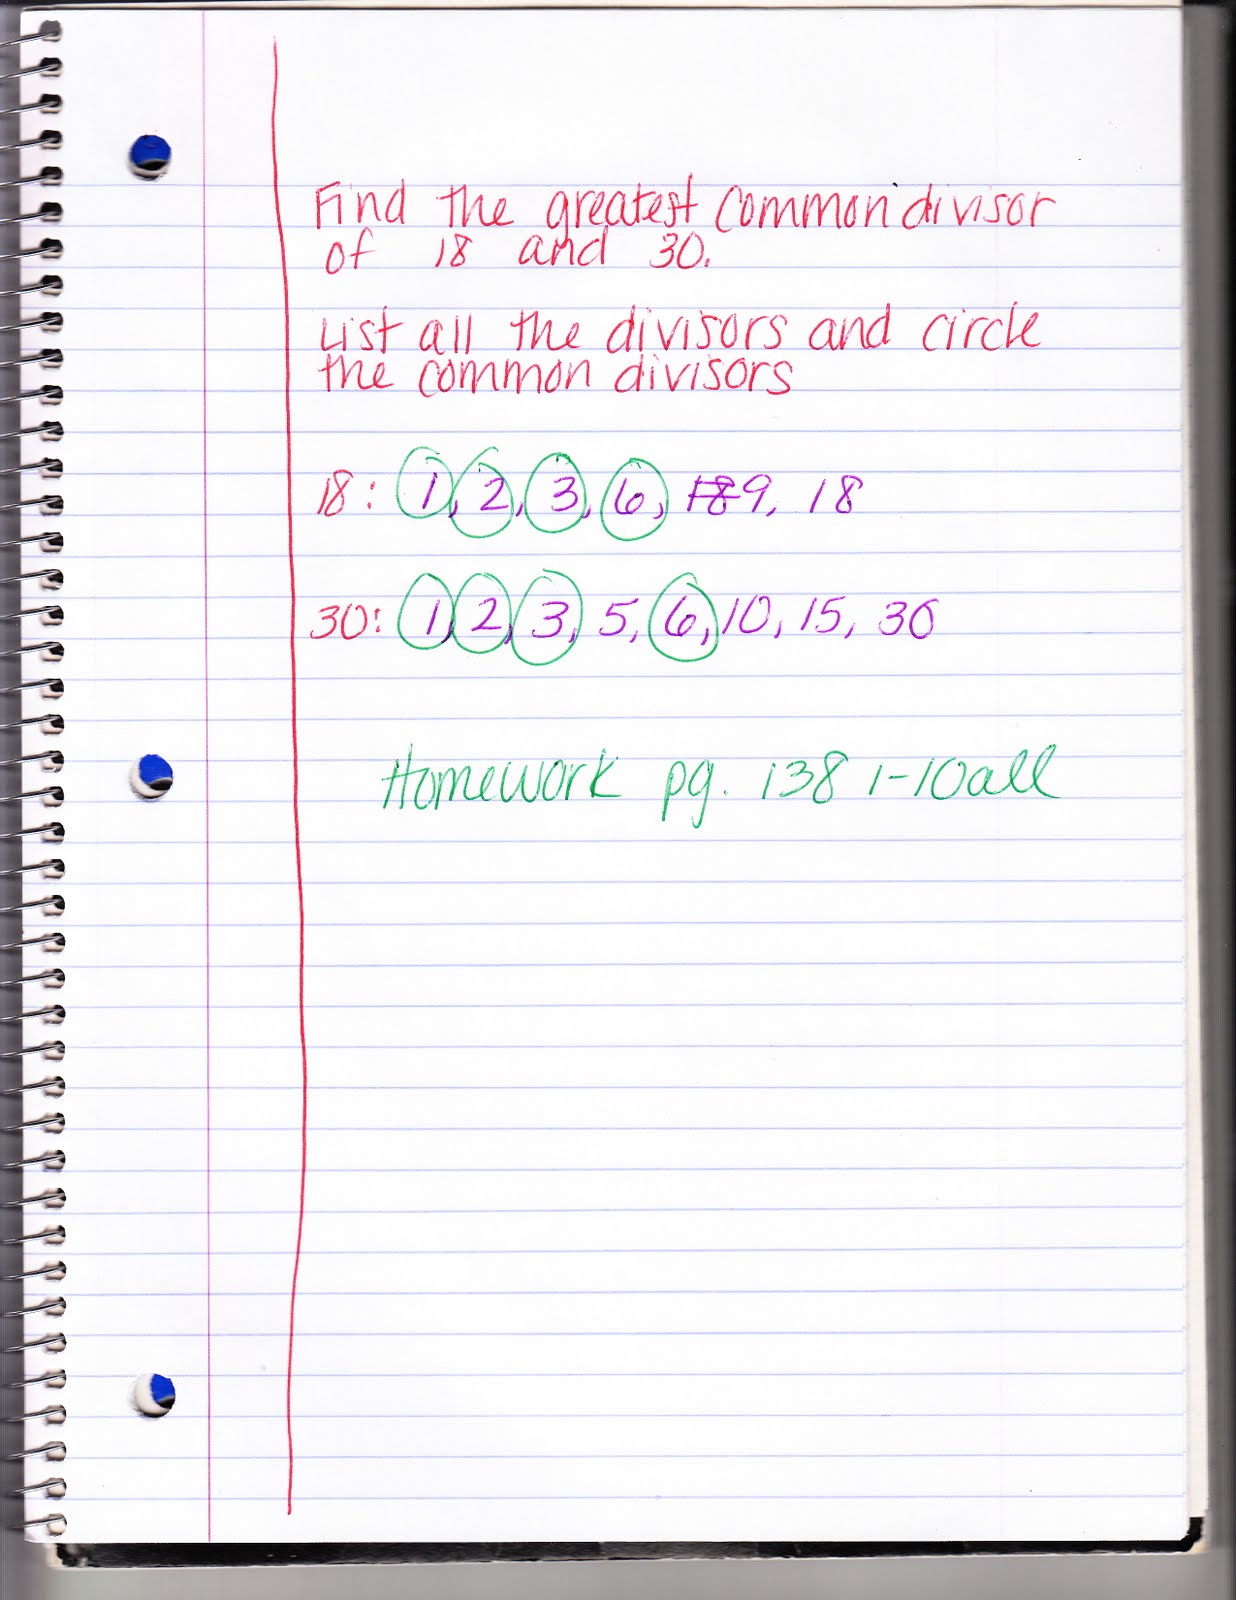 Find the greatest common divisor
of 18 and 30.
List all the divisors and circle
the common divisors
18: 1, 2, 3, 6, 18 9, 18
30: 1, 2, 3, 5, 6, 10, 15, 30
Homework pg. 138 1-10 all